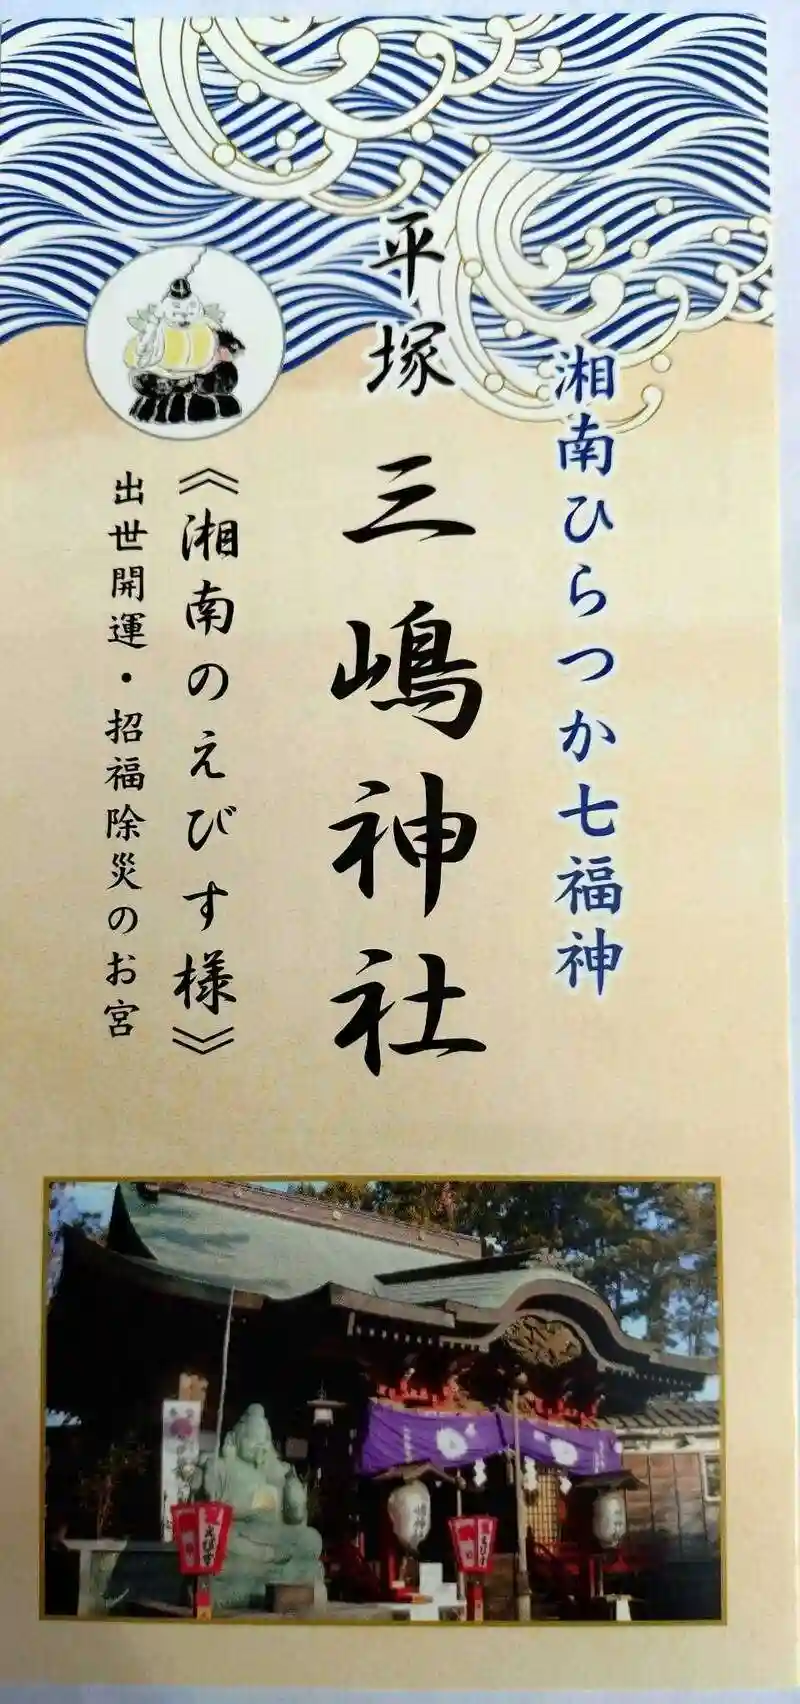 湘南ひらつか七福神
平塚 三嶋神社
《湘南のえびす様》
出世開運・招福除災のお宮